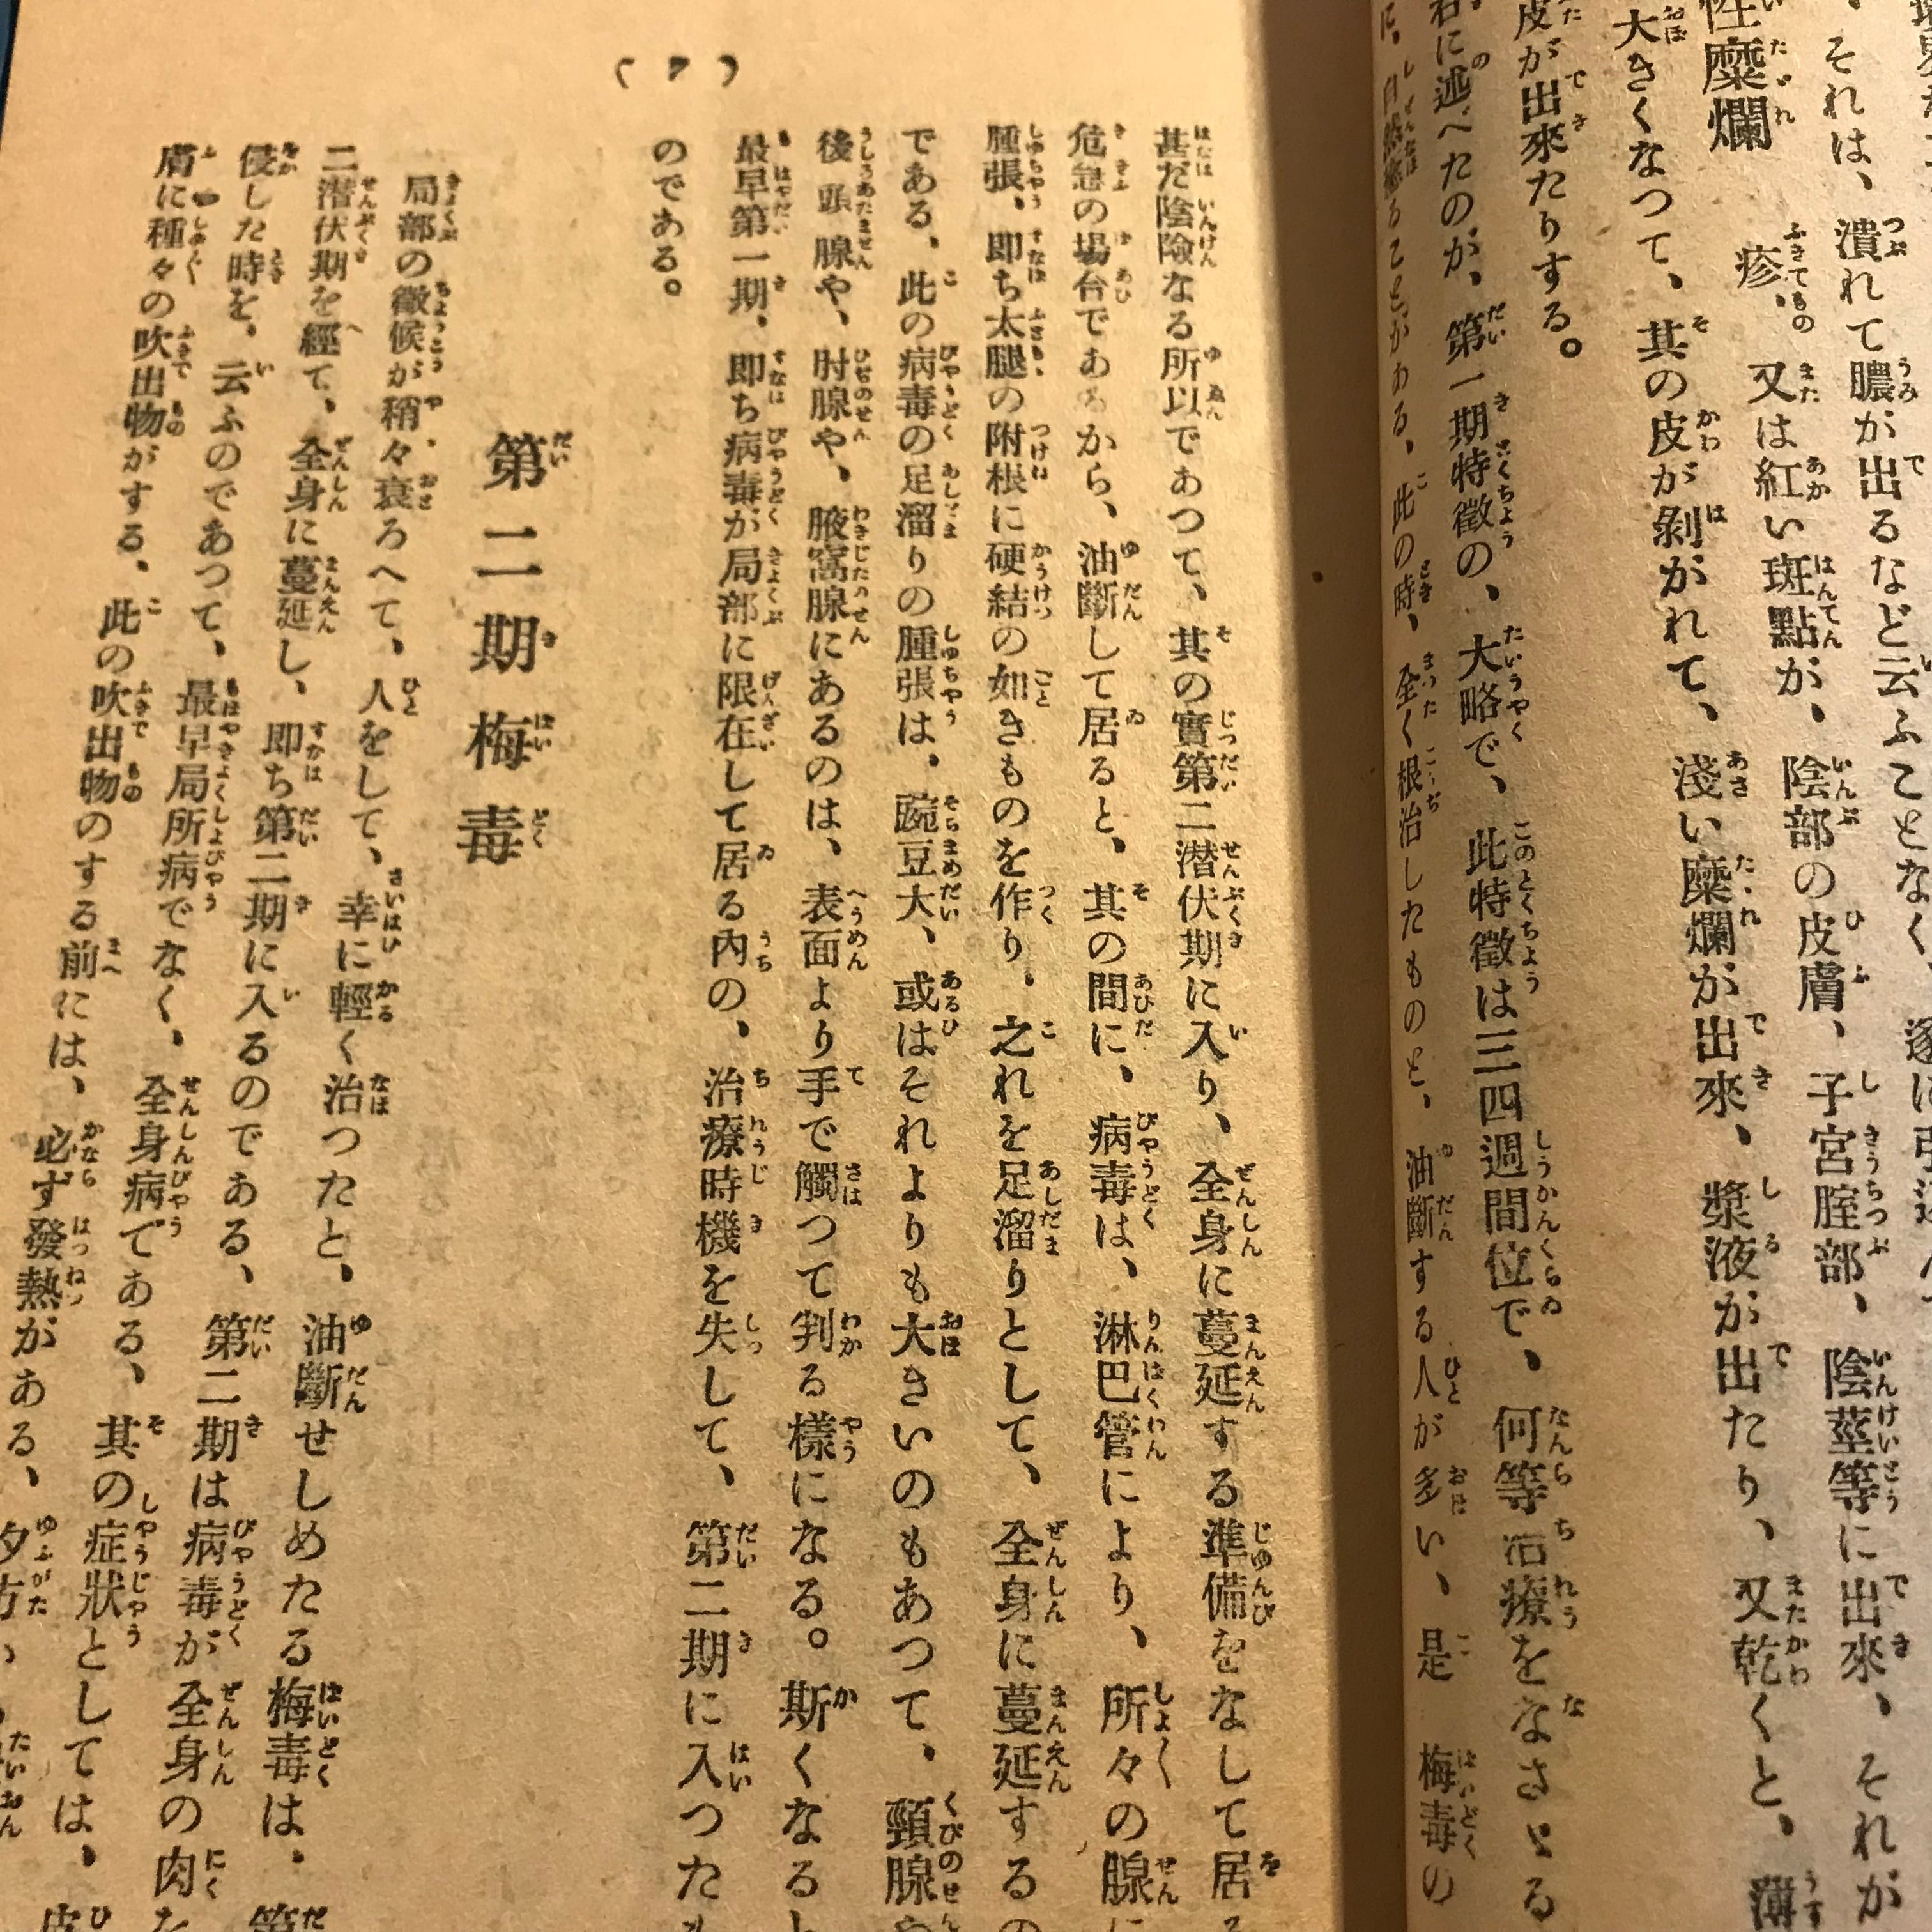 、それは、潰れて膿が出るなど云ふことなく、遂に
性糜爛疹、又は紅い斑點が、陰部の皮膚、子宮腟部、陰莖等に出來、それが
大きくなつて、其の皮が剝がれて、淺い糜爛が出來、漿液が出たり、又乾くと、薄
皮が出來たりする。
右に述べたのが、第一期特徵の、大略で、此特徵は三四週間位で、何等治療をなさゞる
に、自然癒ることがある、此の時、全く根治したものと、油斷する人が多い、是 梅毒の
(7)
甚だ陰險なる所以であつて、其の實第二潜伏期に入り、全身に蔓延する準備をなして居る
危急の場合であるから、油斷して居ると、其の間に、病毒は、淋巴管により、所々の腺に
腫張、即ち太腿の附根に硬結の如きものを作り、之れを足溜りとして、全身に蔓延するの
である、此の病毒の足溜りの腫張は、豌豆大、或はそれよりも大きいのもあつて、頸腺や
後頭腺や、肘腺や、腋窩腺にあるのは、表面より手で觸つて判る樣になる。斯くなると
最早第一期、即ち病毒が局部に限在して居る內の、治療時機を失して、第二期に入つたも
のである。
第二期梅毒
局部の徵候が稍々衰ろへて、人をして、幸に輕く治つたと、油斷せしめたる梅毒は、第
二潜伏期を經て、全身に蔓延し、即ち第二期に入るのである、第二期は病毒が全身の肉を
侵した時を、云ふのであつて、最早局所病でなく、全身病である、其の症狀としては、皮
膚に種々の吹出物がする、此の吹出物のする前には、必ず發熱がある、夕方